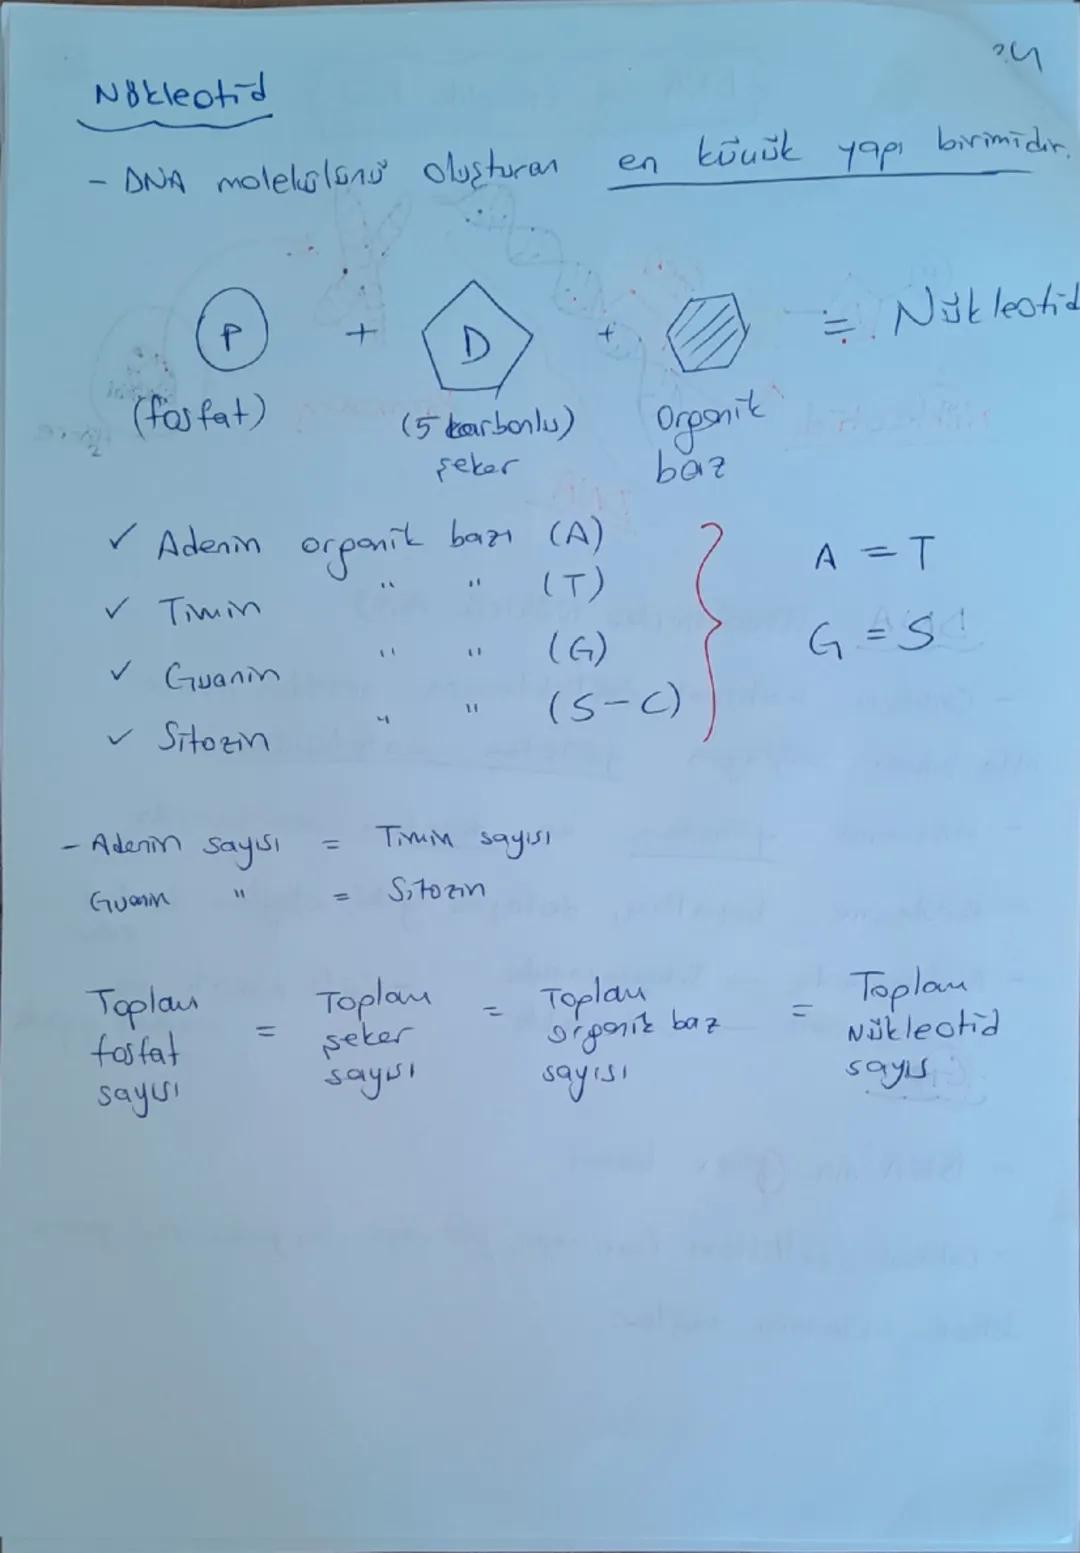 24
Nükleotid
- DNA molekülünü oluşturan en küçük yapı birimidir.
P + D + = Nükleotid
(fosfat) (5 karbonlu) şeker Organik baz
✓ Adenin organik bazı (A)
✓ Timin " " (T)
✓ Guanin " " (G)
✓ Sitozin " " (S-C)
A = T
G = S
- Adenin sayısı = Timin sayısı
Guanin " = Sitozin
Toplam fosfat sayısı = Toplam şeker sayısı = Toplam organik baz sayısı = Toplam Nükleotid sayısı